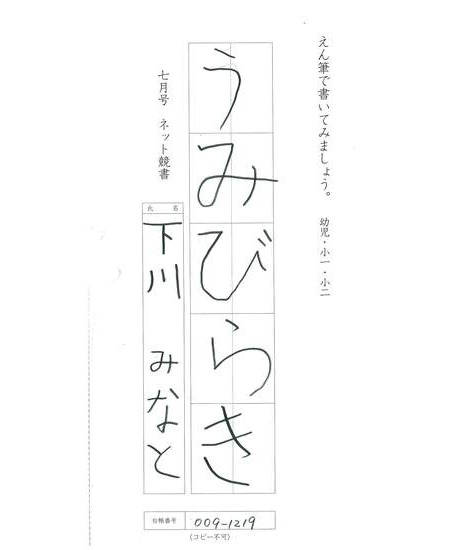 えん筆で書いてみましょう。 幼児・小一・小二
うみびらき
七月号 ネット競書
氏名
下川 みなと
台帳番号 009-1219
(コピー不可)